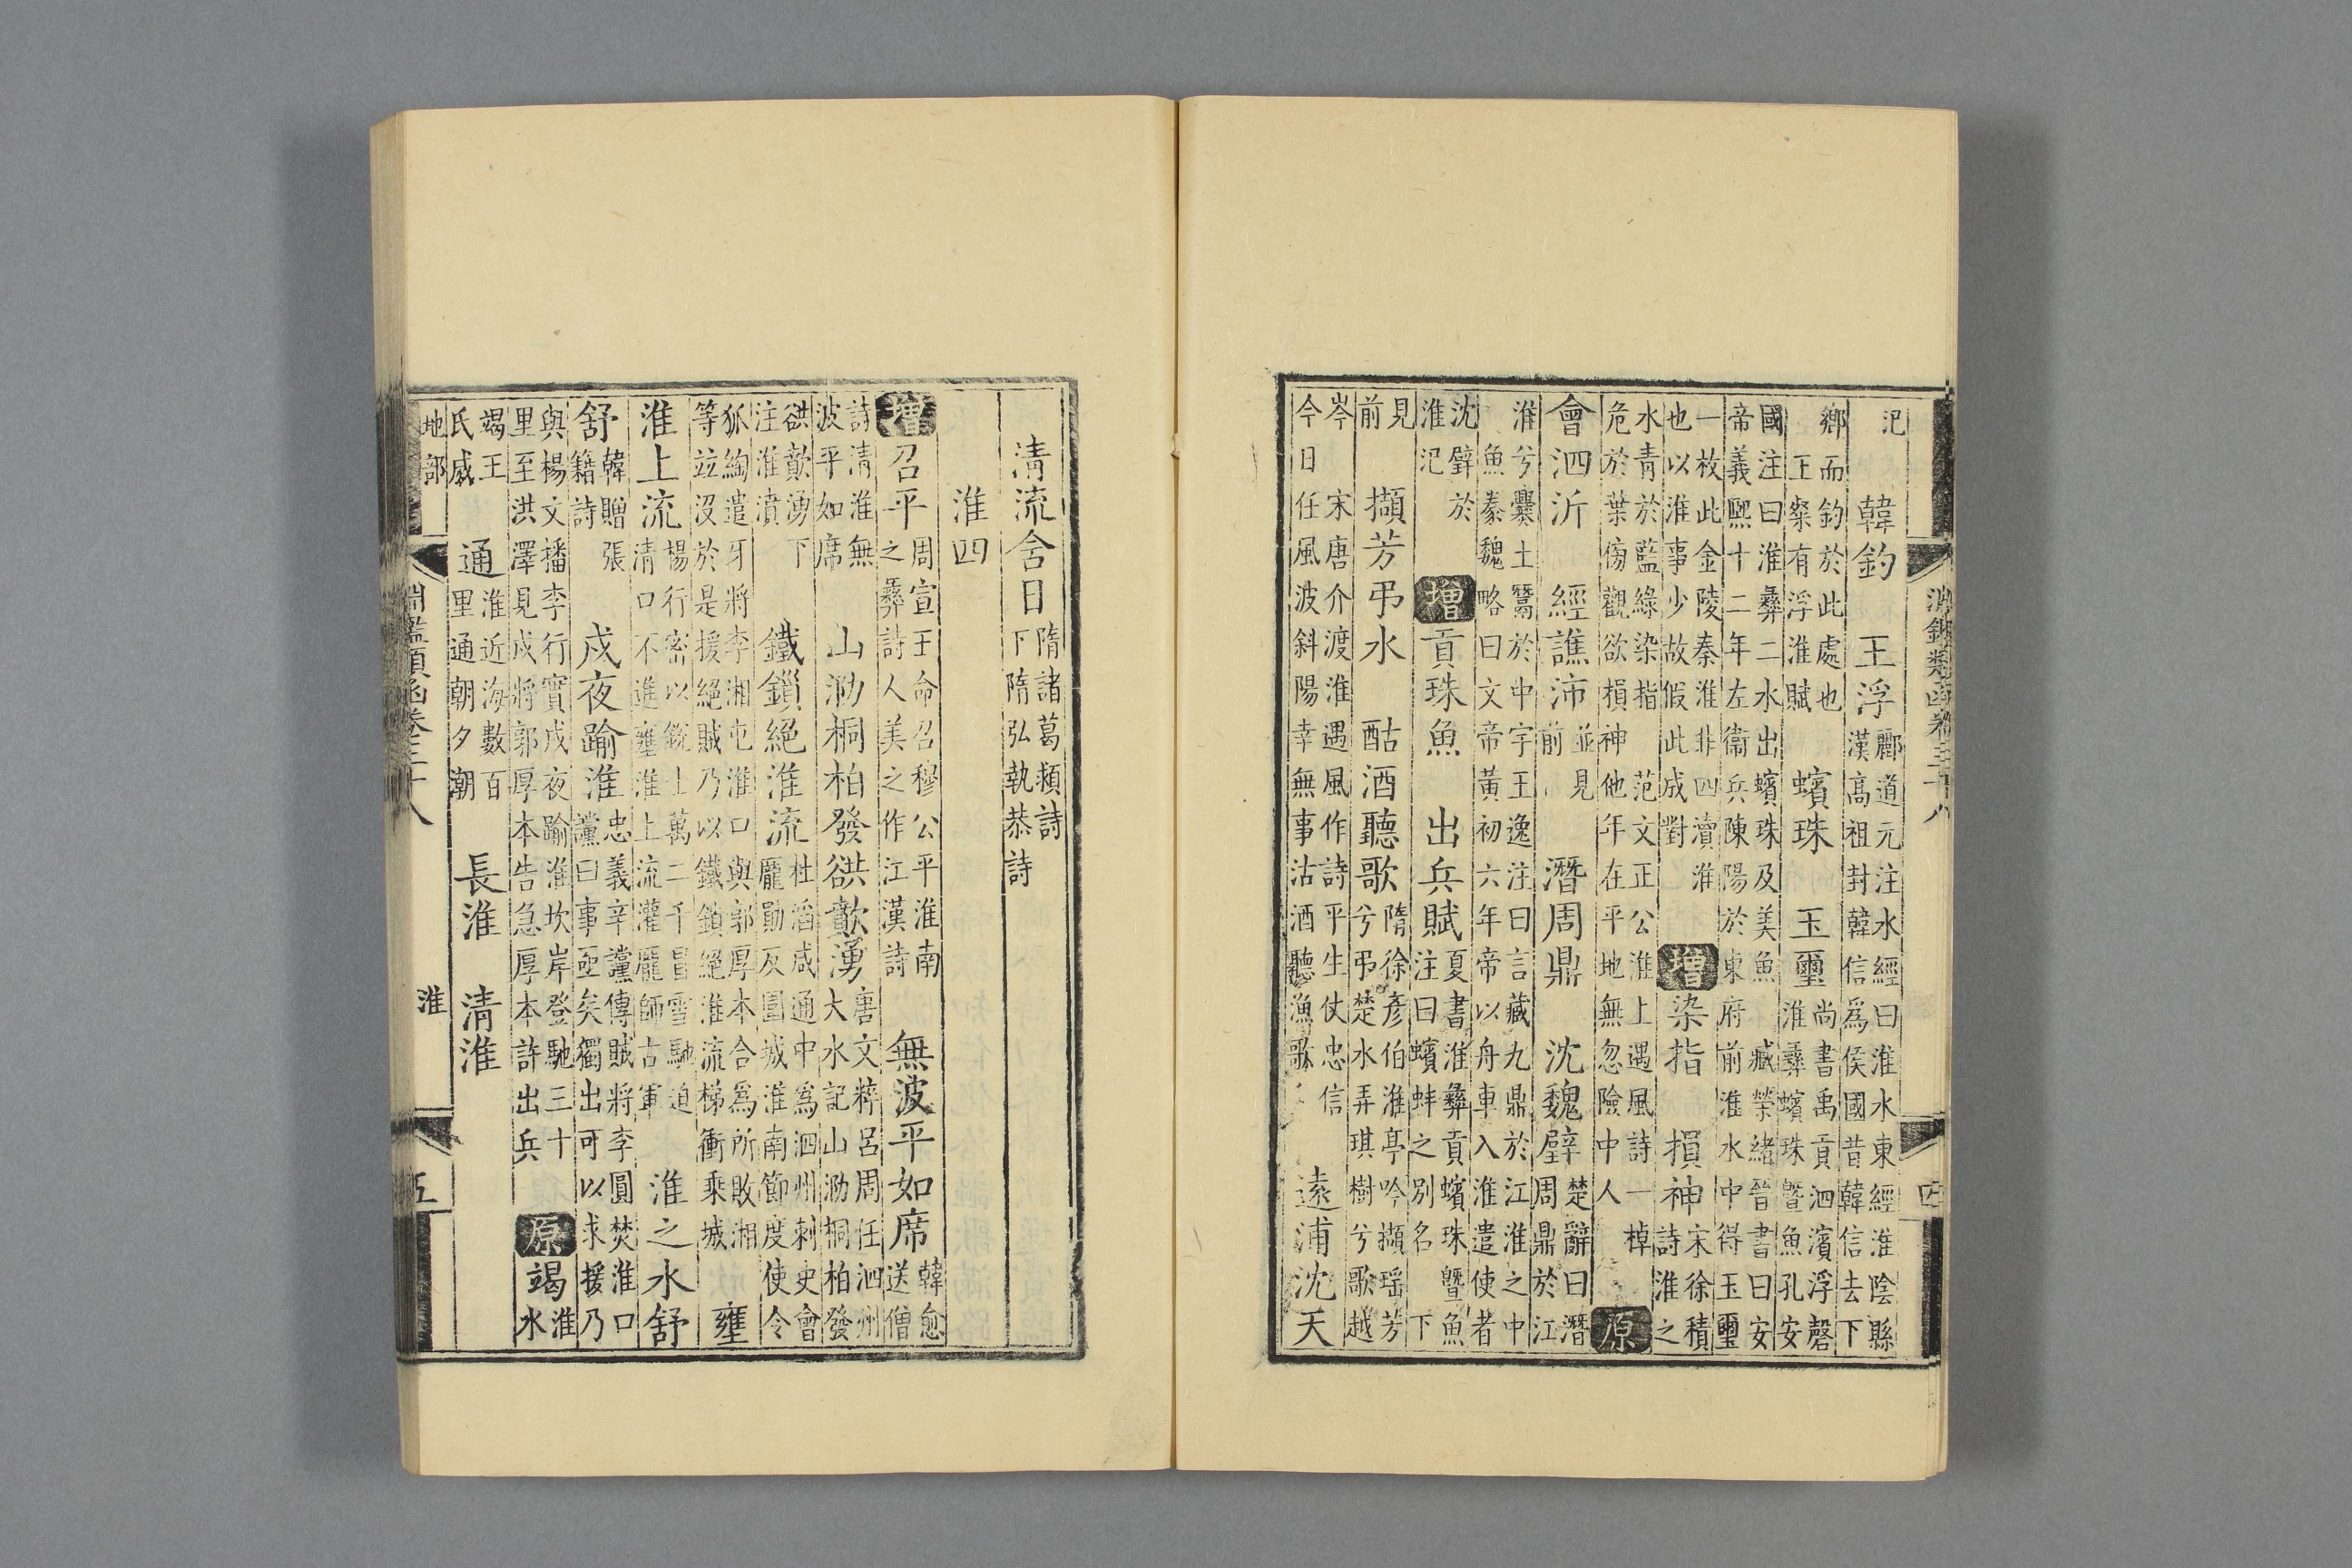 淵鑑類函卷三十八 四
汜 韓釣 王浮 酈道元注水經曰淮水東經淮陰縣漢高祖封韓信為侯國昔韓信去下
鄉而釣於此處也王粲有浮淮賦 蠙珠 玉璽 尚書禹貢泗濱浮磬淮彝蠙珠暨魚孔安
國注曰淮彝二水出蠙珠及美魚 臧榮緒晉書曰安帝義熙十二年左衞兵陳陽於東府前淮水中得玉璽
一枚此金陵秦淮非四瀆淮也以淮事少故假此成對 增 染指 損神 宋徐積詩淮之
水青於藍綠染指 范文正公淮上遇風詩一棹危於葉傍觀欲損神他年在平地無忽險中人 原
會泗沂 經譙沛 並見前 潛周鼎 沈魏璧 楚辭曰潛周鼎於江
淮兮爨土鬵於中宇王逸注曰言藏九鼎於江淮之中 魚豢魏略曰文帝黃初六年帝以舟車入淮遣使者
沈璧於淮汜 增 貢珠魚 出兵賦 夏書淮彝貢蠙珠暨魚注曰蠙蚌之別名 下
見前 擷芳弔水 酤酒聽歌 隋徐彥伯淮亭吟擷瑤芳兮弔楚水弄琪樹兮歌越
岑 宋唐介渡淮遇風作詩平生仗忠信今日任風波斜陽幸無事沽酒聽漁歌 遠浦沈天
清流舍日 隋諸葛潁詩下隋弘執恭詩
淮四
增 召平 周宣王命召穆公平淮南之彝詩人美之作江漢詩 無波平如席 韓愈送僧
詩清淮無波平如席 山泐桐柏發谼歕湧 唐文粹呂周任泗州大水記山泐桐柏發
谼歕湧下注淮瀆 鐵鎖絕淮流 杜滔咸通中為泗州刺史會龐勛反圍城淮南節度使令
狐綯遣牙將李湘屯淮口與郭厚本合為所敗湘等竝沒於是援絕賊乃以鐵鎖絕淮流梯衝乘城 壅
淮上流 楊行密以銳士萬二千冒雪馳迫清口不進壅淮上流灌龐師古軍 淮之水舒
舒 韓贈張籍詩 戍夜踰淮 忠義辛讜傳賊將李圓焚淮口讜曰事亟矣獨出可以求援乃
與楊文播李行實戍夜踰淮坎岸登馳三十里至洪澤見戍將郭厚本告急厚本許出兵 原 竭 淮水
竭王氏滅 通 淮近海數百里通朝夕潮 長淮 清淮
地部 淵鑑類函卷三十八 淮 五